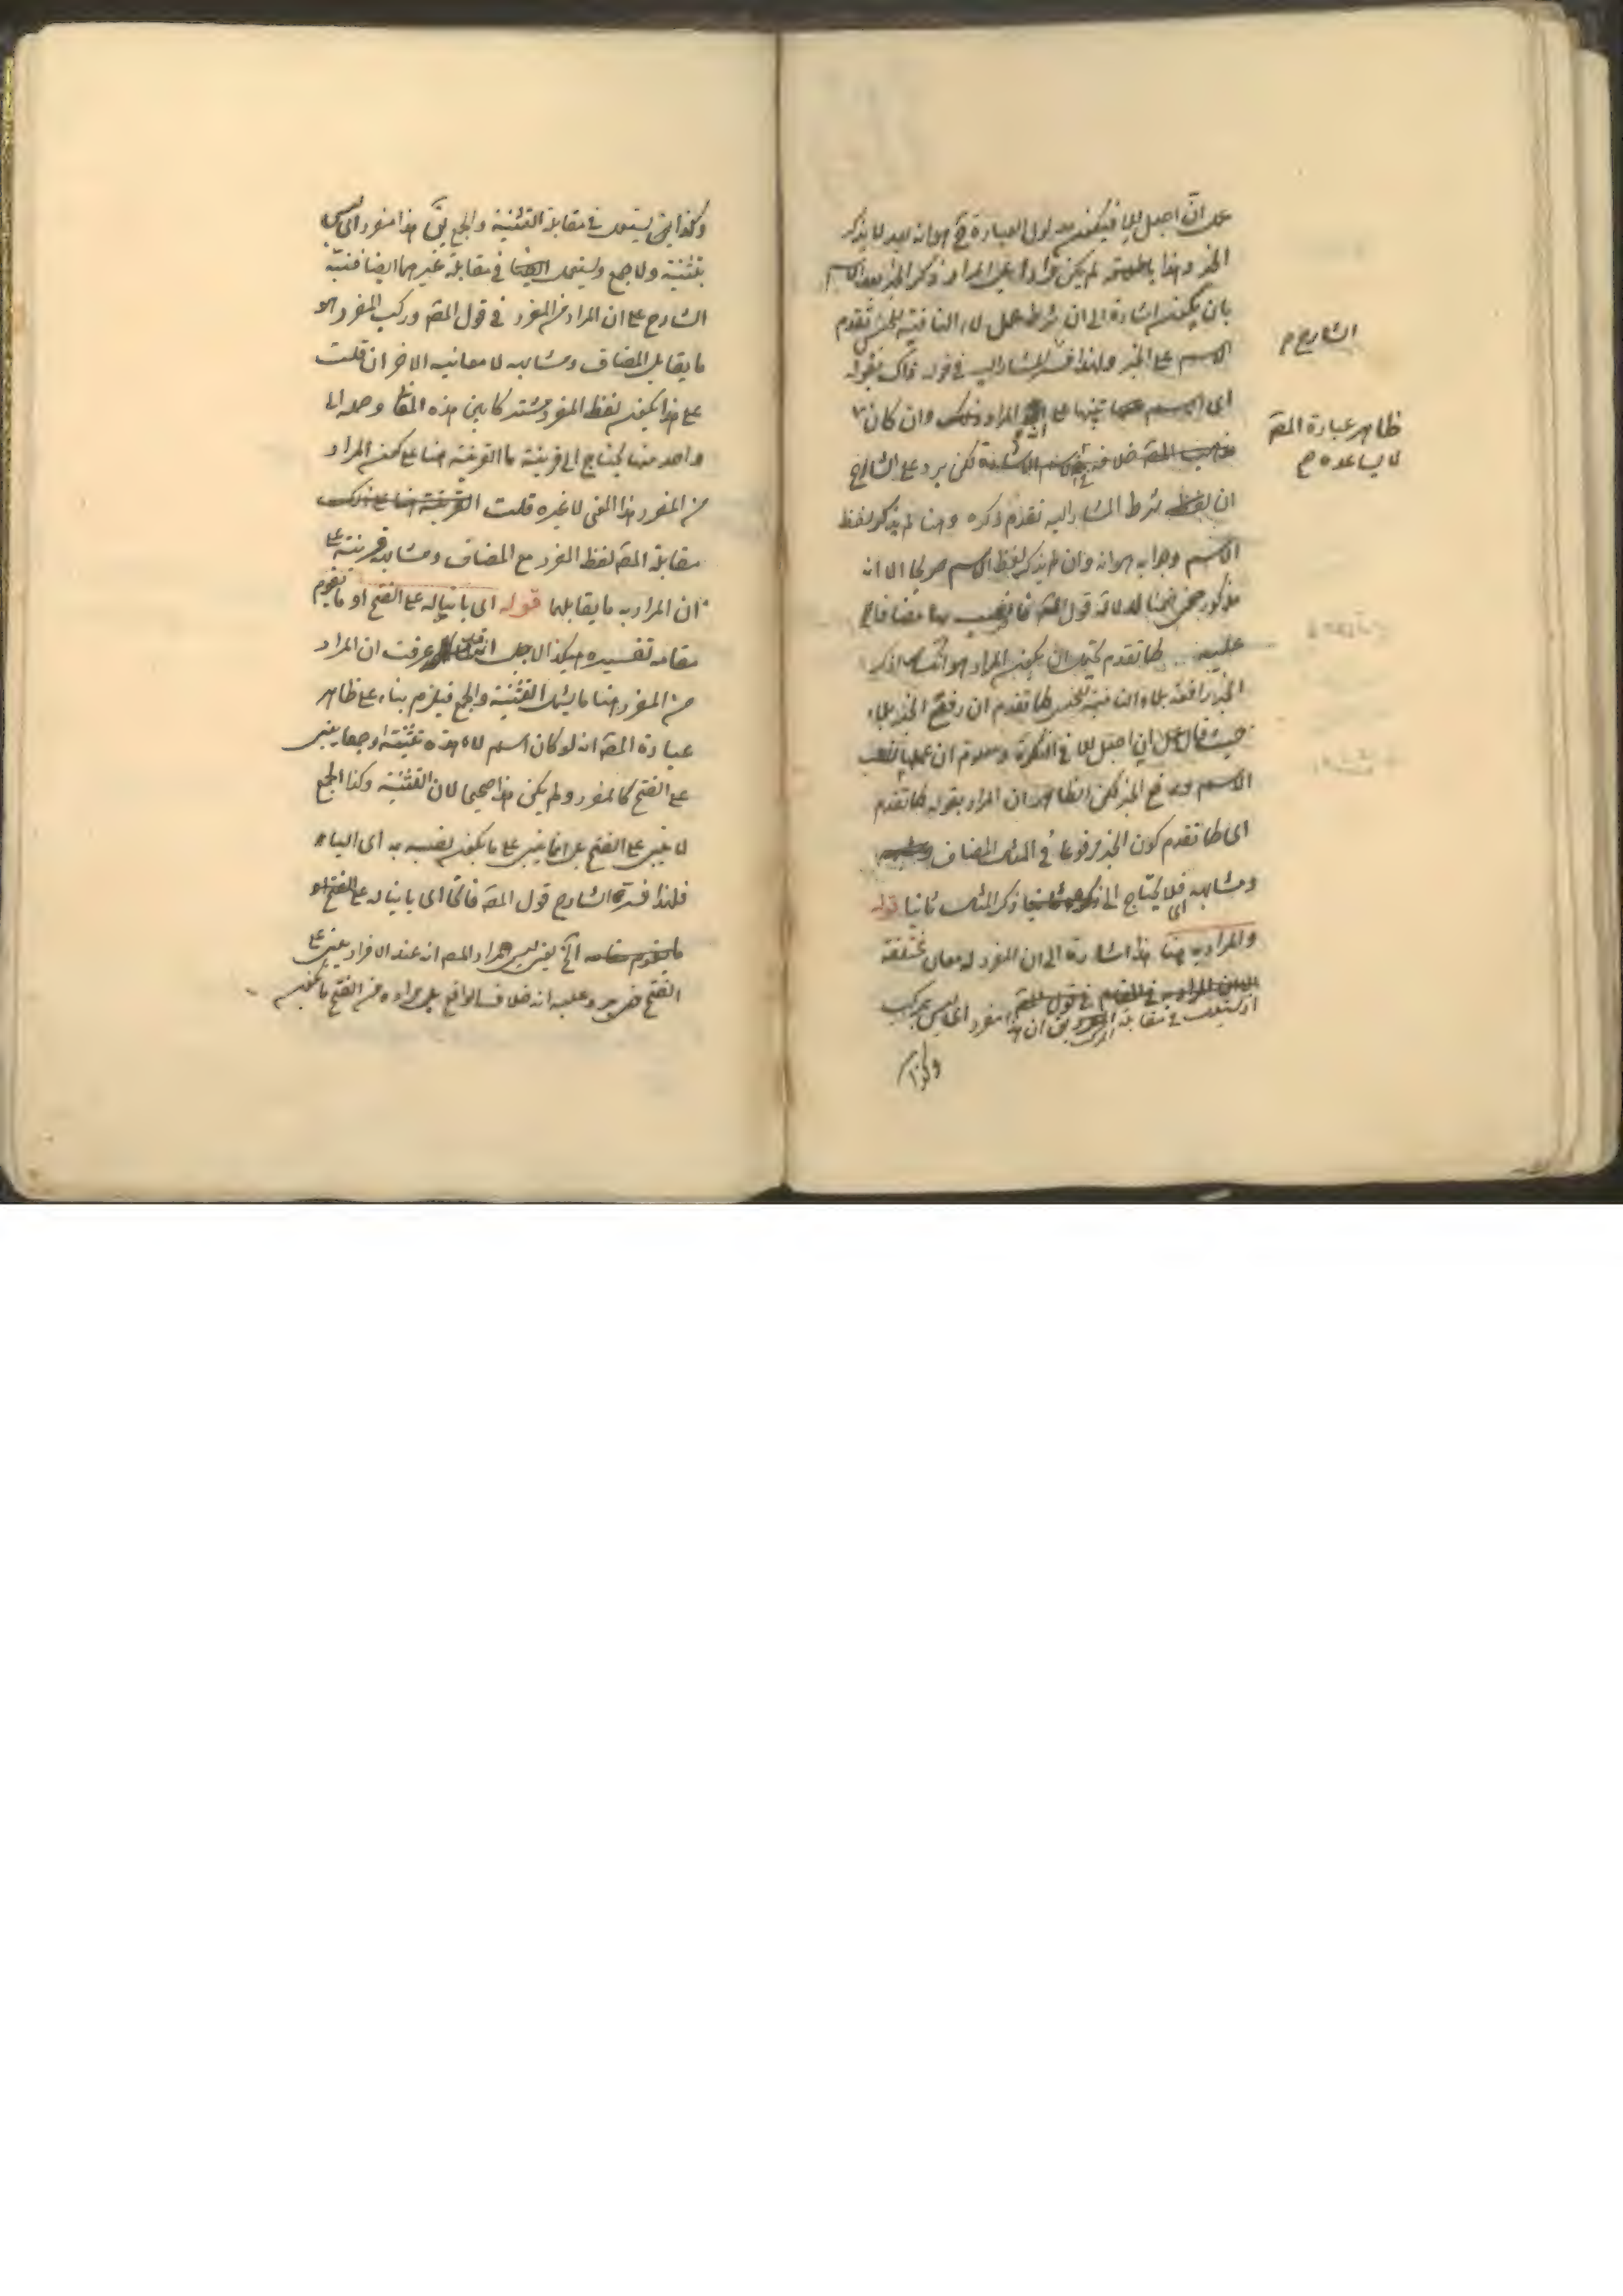 عمل انّ اجعل للا فيكون مدلول العبارة ح هو انه بعد لا يذكر
الخبر وهذا لم يكن مرادا بل المراد ذكر الخبر بعد الاسم
بان يكون اشارة الى ان شرط عمل لاء النافية للجنس تقدم
الاسم على الخبر ولهذا فسر المشار اليه في قوله ذاك بقوله
اى الاسم تنبيها على المراد وان كان
خلافه لكن يرد على الشارح
ان شرط المشار اليه تقدم ذكره وهنا لم يذكر لفظ
الاسم وجوابه هو انه وان لم يذكر لفظ الاسم صريحا الا انه
مذكور ضمنا لدلالة قول المص فانصب بها مضافا
عليه لما تقدم يحتمل ان يكون المراد هو انك اذكر
الخبر رافعه بلاء النافية للجنس لما تقدم ان رفع الخبر بلاء
حيث قال عمل ان اجعل للا في النكرة ومعلوم ان عملها نصب
الاسم ورفع الخبر لكن الظاهر ان المراد بقوله لما تقدم
اى لما تقدم كون الخبر مرفوعا في المثال المضاف
ومشابهه فلا يحتاج الى ذكر المثال ثانيا قوله
والمراد به هنا هذا اشارة الى ان المفرد له معان مختلفة
اذ يستعمل في مقابلة المركب يق ان هذا مفرد اى ليس بمركب
وكذا
الشارح م
ظاهر عبارة المص
لا يساعده م
وكذا ايض يستعمل في مقابلة التثنية والجمع يق هذا مفرد اى ليس
بتثنية ولا جمع ويستعمل في مقابلة غيرهما ايضا فنبّه
الشارح على ان المراد من المفرد في قول المص وركب المفرد هو
ما يقابل المضاف ومشابهه لا معانيه الاخر ان قلت
على هذا يكون لفظ المفرد مشتركا بين هذه المعا وحمله الى
واحد منها يحتاج الى قرينة ما القرينة هنا على كون المراد
من المفرد هذا المعنى لا غيره قلت القرينة هنا على ذلك
مقابلة المص لفظ المفرد مع المضاف ومشابهه قرينة على
ان المراد به ما يقابلهما قوله اى بانيا له على الفتح او ما يقوم
مقامه تفسيره هكذا لاجل انك عرفت ان المراد
من المفرد هنا ما يشمل التثنية والجمع فيلزم بناء على ظاهر
عبارة المص انه لو كان اسم لاء هذه تثنية او جمعا يبنى
على الفتح كالمفرد ولم يكن هذا صحيحا لان التثنية وكذا الجمع
لا يبنى على الفتح بل انما يبنى على ما يكون نصبه به اى الياء
فلهذا فسره الشارح قول المص فاتحا اى بانيا له على الفتح او
ما يقوم مقامه الخ يعنى ليس مراد المص انه عند الافراد يبنى على
الفتح حتى يرد عليه انه خلاف الواقع بل مراده من الفتح ما يكون